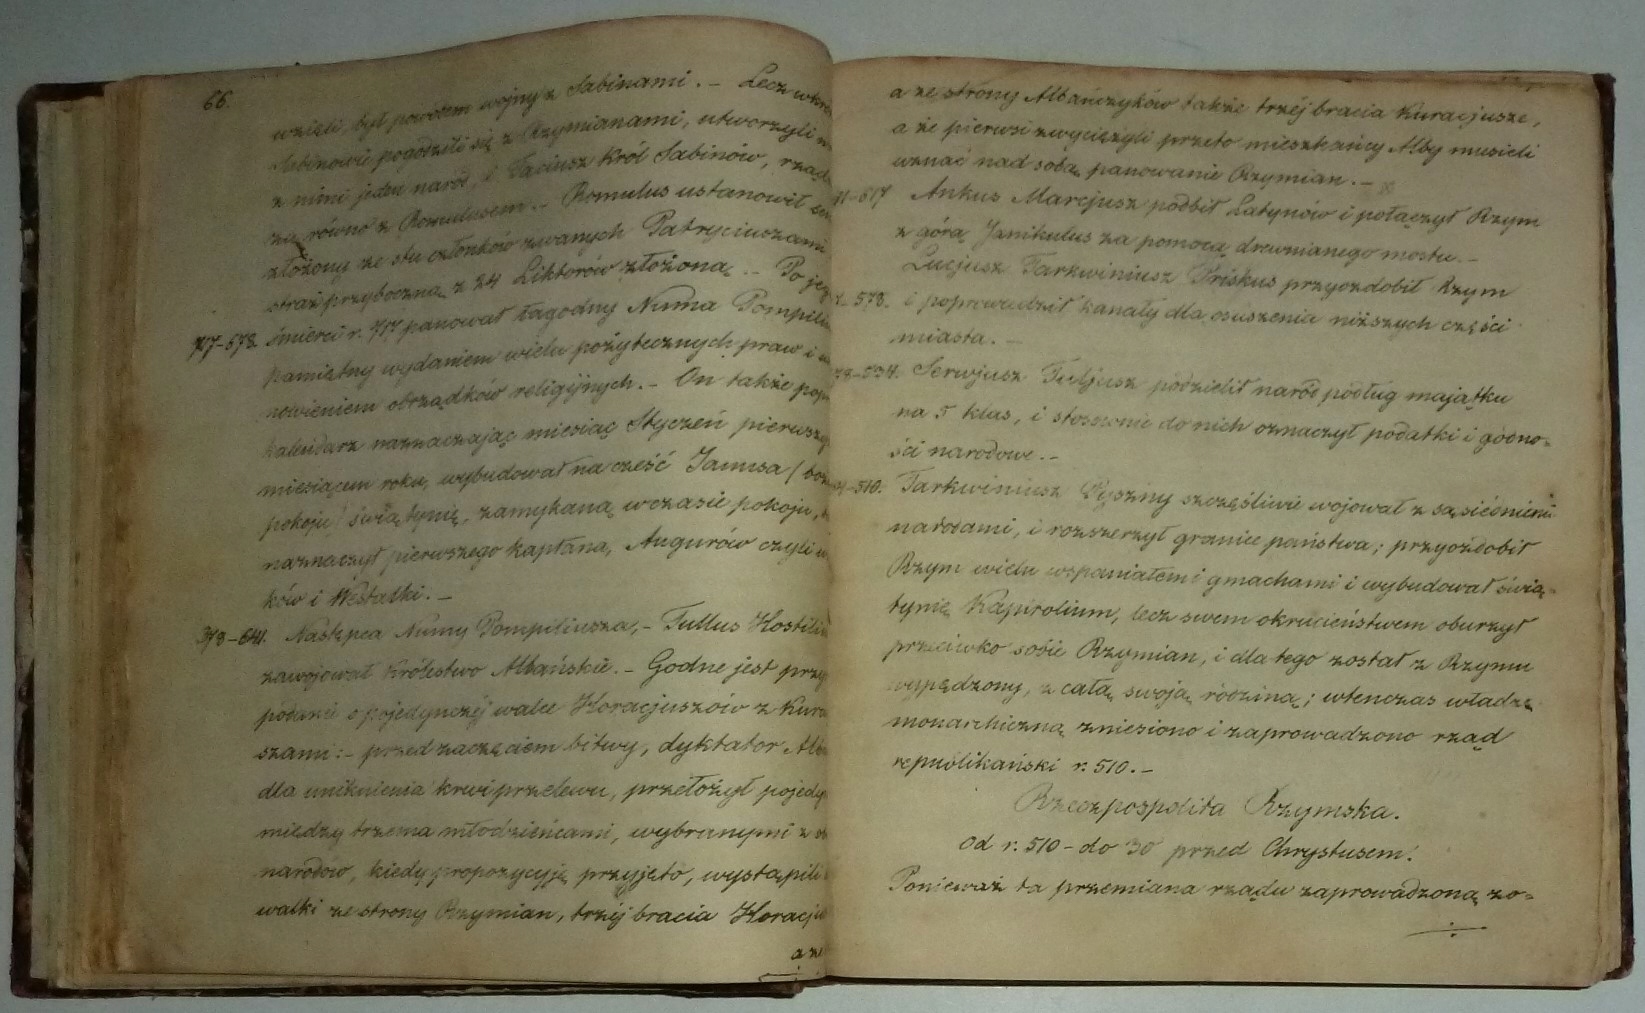 66.
wzięli, był powodem wojny z Sabinami. – Lecz wkró
Sabinowie pogodzili się z Rzymianami, utworzyli
z nimi jeden naród, i Tacjusz Król Sabinów, rząd
ził równo z Romulusem. – Romulus ustanowił sen
złożony ze stu członków zwanych Patrycjuszami
straż przyboczną z 24 Liktorów złożoną. – Po jeg
717–678. śmierci r. 717 panował łagodny Numa Pompili
pamiętny wydaniem wielu pożytecznych praw i
nowieniem obrządków religijnych. – On także pop
kalendarz naznaczając miesiąc Styczeń pierwszy
miesiącem roku, wybudował na cześć Janusa / boż
pokoju / świątynię, zamykaną w czasie pokoju,
naznaczył pierwszego kapłana, Augurów czyli
ków i Westalki. –
378–641. Następca Numy Pompiliusza, – Tullus Hostili
zawojował Królestwo Albańskie. – Godne jest przy
podanie o pojedynczéj walce Horacjuszów z Kura
szami: – przed zaczęciem bitwy, dyktator Alb
dla uniknienia krwi przelewu, przełożył pojedy
między trzema młodzieńcami, wybranymi z
narodów, kiedy propozycyję przyjęto, wystąpili
walki ze strony Rzymian, trzéj bracia Horacju
a ze
a ze strony Albańczyków także trzéj bracia Kuracjusze,
a że pierwsi zwyciężyli przeto mieszkańcy Alby musieli
uznać nad sobą panowanie Rzymian. –
41–617 Ankus Marcjusz podbił Latynów i połączył Rzym
z górą Janikulus za pomocą drewnianego mostu. –
Lucjusz Tarkwiniusz Priskus przyozdobił Rzym
7–578. i poprowadził kanały dla osuszenia niższych części
miasta. –
78–534. Serwjusz Tuljusz podzielił naród podług majątku
na 5 klas, i stosownie do nich oznaczył podatki i godno=
ści narodowe. –
34–510. Tarkwiniusz Pyszny szczęśliwie wojował z sąsiedniemi
narodami, i rozszerzył granice państwa; przyozdobił
Rzym wielu wspaniałemi gmachami i wybudował świą=
tynię Kapitolium, lecz swem okrucieństwem oburzył
przeciwko sobie Rzymian, i dla tego został z Rzymu
wypędzony, z całą swoją rodziną; wtenczas władzę
monarchiczną zniesiono i zaprowadzono rząd
republikański r. 510. –
Rzeczpospolita Rzymska.
Od r. 510 – do 30 przed Chrystusem.
Ponieważ ta przemiana rządu zaprowadzoną zo=